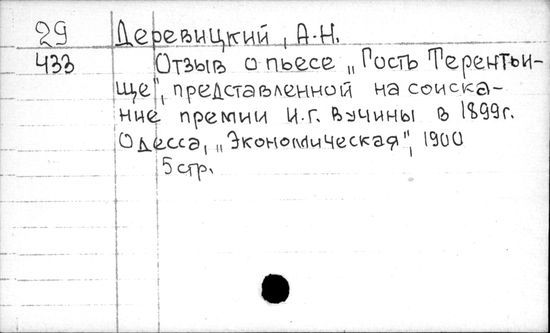 29 Деревицкий, А.Н.
433 Отзыв о пьесе „Гость Терентьи-
ще", представленной на соиска-
ние премии И.Г. Вучины в 1899г.
Одесса, „Экономическая", 1900
5 стр.